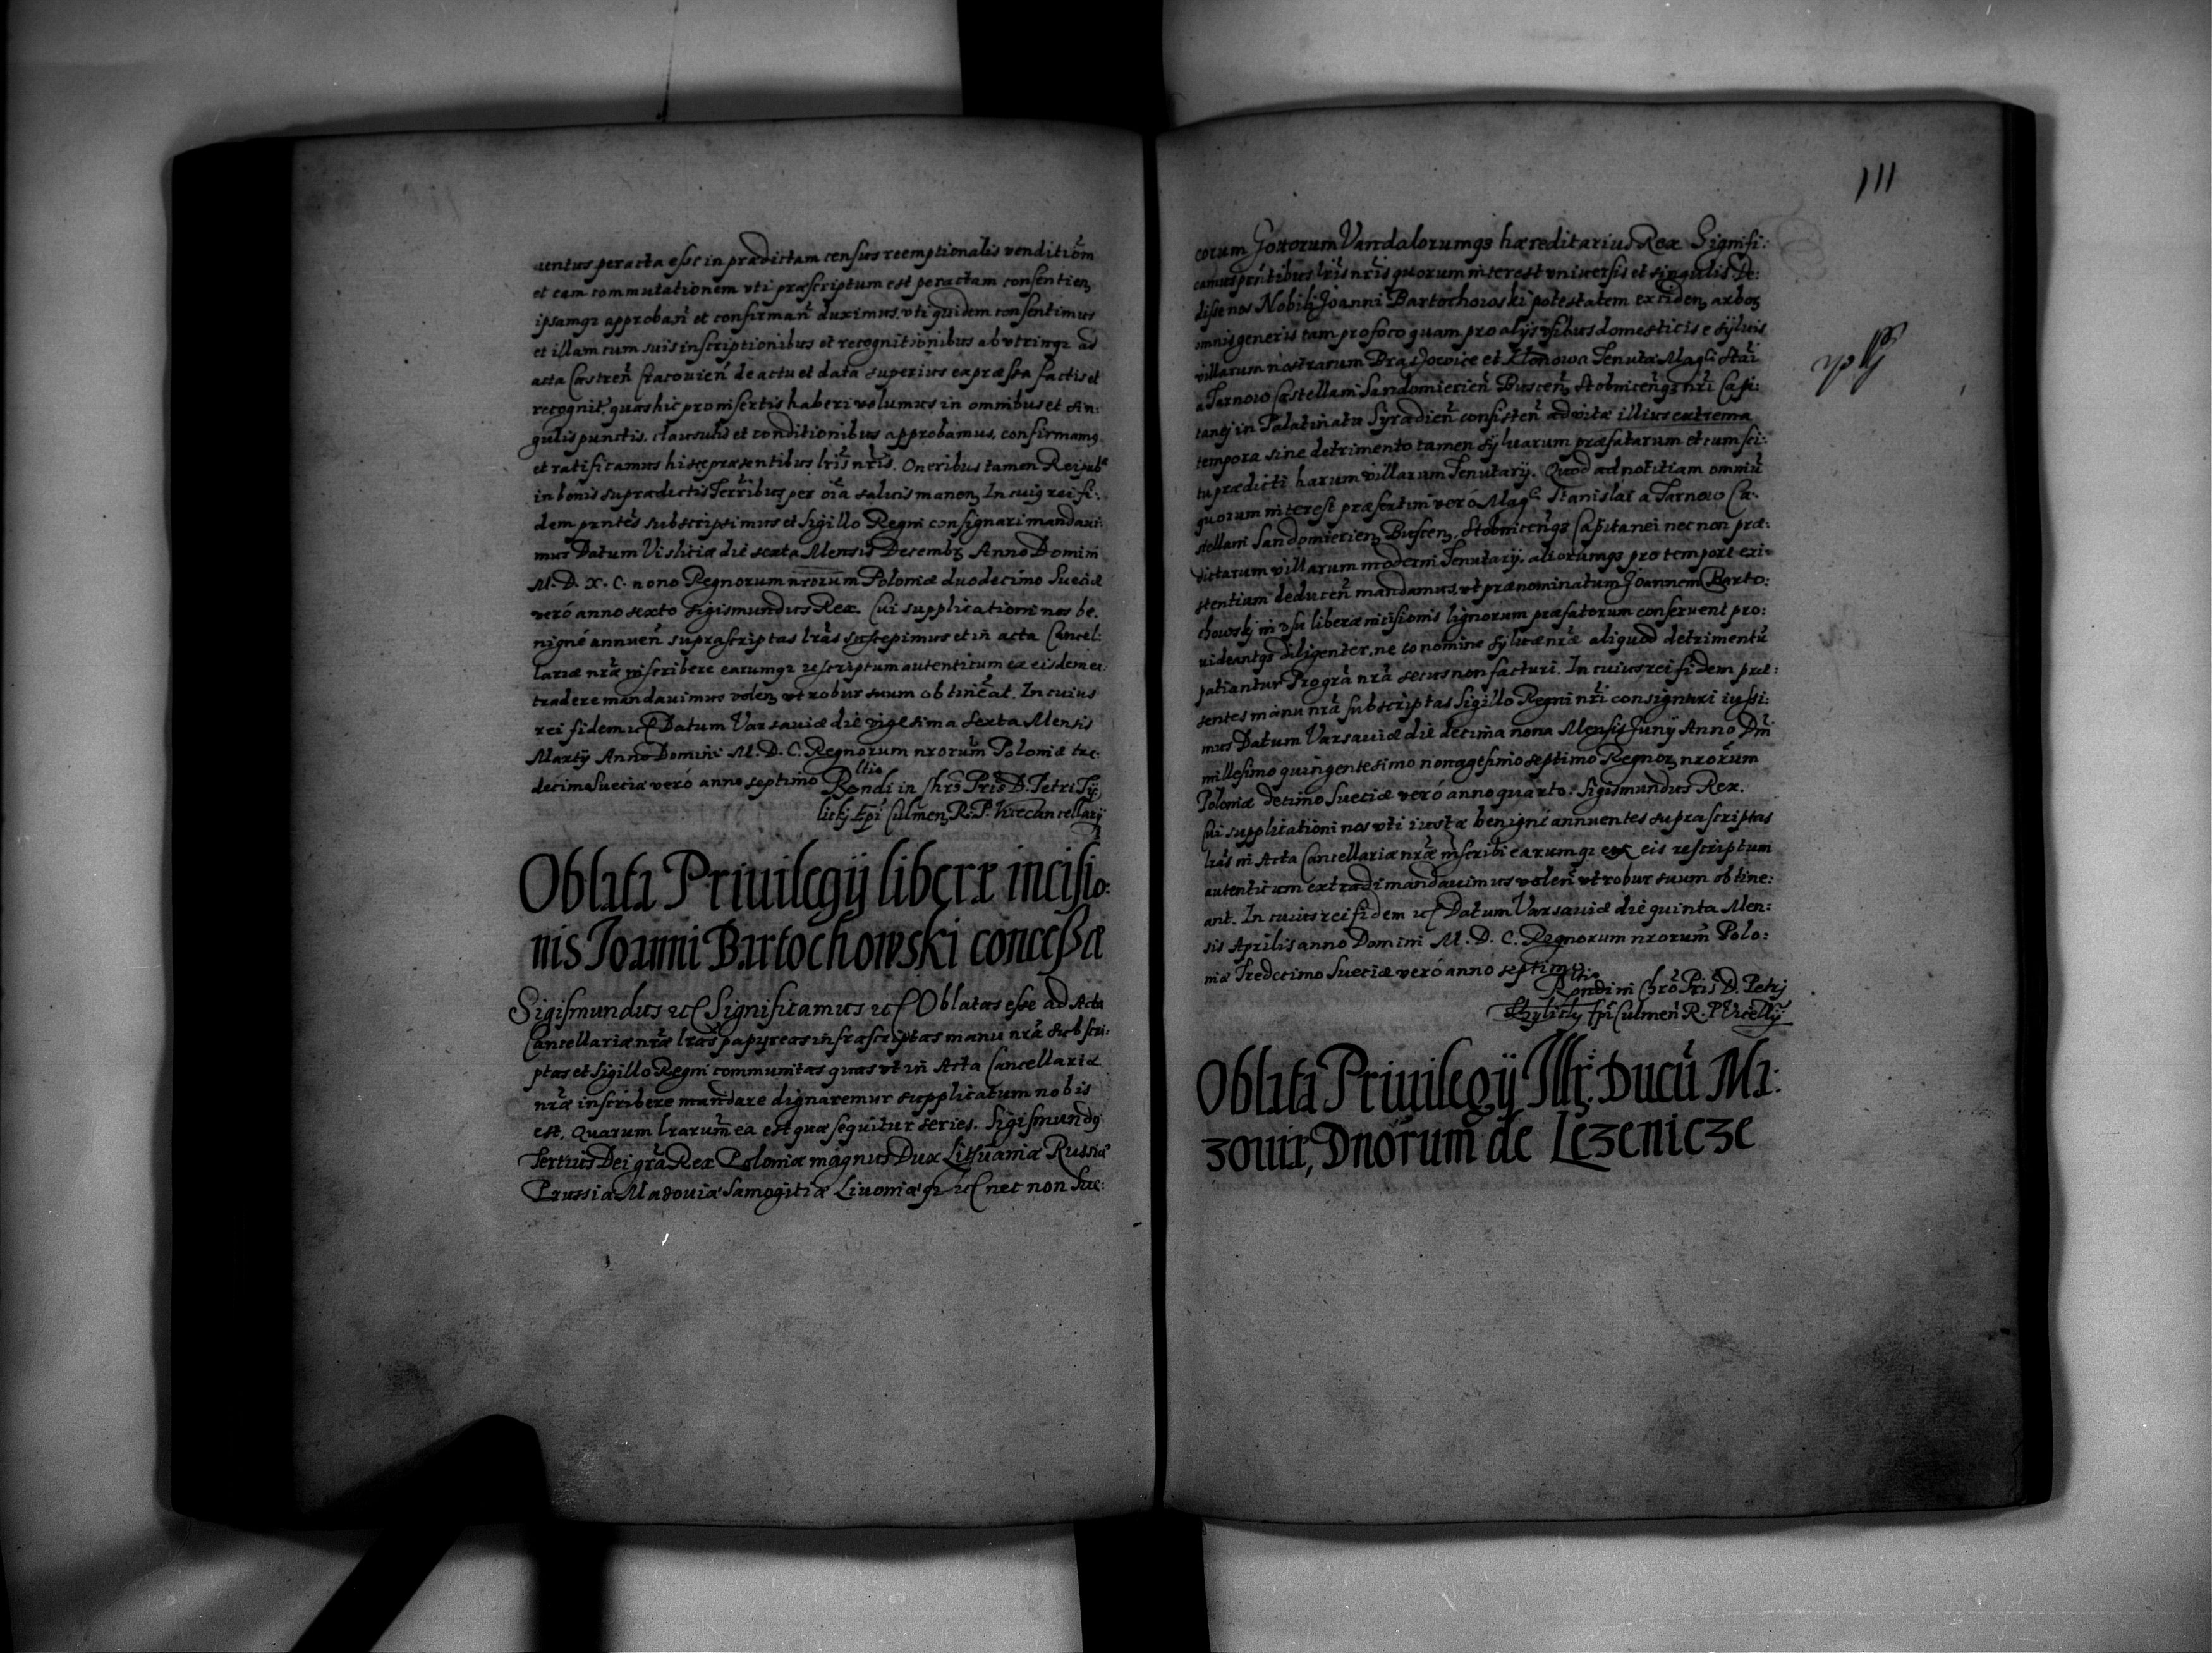 uentus peracta esse in prædictam census reemptionalis venditiōm
et eam commutationem vti præscriptum est peractam consentien,
ipsamqꝫ approbañ et confirmañ duximus, vti quidem consentimus
et illam cum suis inscriptionibus et recognitionibus ab vtrinqꝫ ad
acta Castreñ Cracouieñ de actu et data superius expræssa factis et
recognit. quas hic pro insertis haberi volumus, in omnibus et sin:
gulis punctis, clausulis et conditionibus approbamus, confirmamꝰ
et ratificamus hisce præsentibus lris nris. Oneribus tamen Reipub
in bonis supradictis Terribus per oia saluis manen, In cuiꝰ rei fi:
dem pntes subscripsimus et sigillo Regni consignari mandaui:
mus Datum Visliciæ die sexta Mensis Decembꝫ Anno Domini
M. D. X. C. nono Regnorum nrorum Poloniæ duodecimo Sueciæ
veró anno sexto Sigismundus Rex. Cui supplicationi nos be.
nigné annueñ suprascriptas lras suscepimus et in acta Cancel:
lariæ nræ inscribere earumqꝫ rescriptum autenticum ex eisdem ex:
tradere mandauimus volen, vt robur suum obtineat. In cuius
rei fidem etc Datum Varsauiæ die vigesima sexta Mensis
Martÿ Anno Domini M. D. C. Regnorum nrorum Poloniæ tre:
decimo Sueciæ veró anno septimo Rltio
Rondi in Chro Pris D. Petri Ty
licki Epi Culmen, R. P. Vicecancellarij
Oblata Priuilegÿ liberæ incisio:
nis Ioanni Bartochowski concessæ
Sigismundus etc Significamus etc Oblatas esse ad Acta
Cancellariæ nræ lras papyreas infrascriptas manu nra subscri:
ptas et sigillo Regni communitas quas vt in Acta Cancellariæ
nræ inscribere mandare dignaremur supplicatum nobis
est. Quarum lrarum ea est quæ sequitur series. Sigismundꝰ
Tertius Dei gra Rex Poloniæ magnus Dux Lithuaniæ Russiæ
Prussiæ Masouiæ Samogitiæ Livoniæ qꝫ etc nec non Sue:
111
corum Gottorum Vandalorumqꝫ hæreditarius Rex Signifi:
camus pntibus lris nris quorum interest vniuersis et singulis De:
disse nos Nobili Joanni Bartochowski potestatem exciden, arboꝝ
omnis generis tam pro foco quam pro alÿs vsibus domesticis e syluis
villarum nostrarum Braszewice et Klonowa Tenutæ Magci Stai
a Tarnow Castellani Sandomirieñ Busceñ, Stobniceñqꝫ nri Capi:
tanei in Palatinatu Syradieñ consisteñ ad vitæ illius extrema
tempora sine detrimento tamen syluarum præfatarum et cum sci:
tu prædicti harum villarum Tenutarÿ. Quod ad notitiam omniū
quorum interest præsertim veró Magci Stanislai a Tarnow Ca:
stellani Sandomirien, Buscen, Stobnicenqꝫ Capitanei nec non præ:
dictarum villarum moderni Tenutarÿ, aliorumqꝫ pro tempore exi:
stentiam deduceñ mandamus, vt prænominatum Joannem Barto:
chowskj in vsu liberæ incisionis lignorum præfatorum conseruent pro:
uideantqꝫ diligenter, ne eo nomine syluæ nræ aliquod detrimentū
patiantur Pro gra nra secus non facturi. In cuius rei fidem præ:
sentes manu nra subscriptas Sigillo Regni nri consignari iussi:
mus Datum Varsauiæ die decima nona Mensis Junÿ Anno Dni
millesimo quingentesimo nonagesimo septimo Regnoꝝ nrorum
Poloniæ decimo Sueciæ veró anno quarto. Sigismundus Rex.
Cui supplicationi nos vti iustæ benigné annuentes suprascriptas
lras in Acta Cancellariæ nræ inscribi earumqꝫ ex eis rescriptum
autenticum extradi mandauimus voleñ vt robur suum obtine:
ant. In cuius rei fidem etc Datum Varsauiæ die quinta Men:
sis Aprilis anno Domini M. D. C. Regnorum nrorum Polo:
niæ Tredecimo Sueciæ veró anno septimo Rltio
Rondi in Chro Pris D. Petrj
Thylickj Epi Culmeñ R. P. Vicellÿ
Oblata Priuilegÿ Illr. Ducū Ma:
zouiæ, Dnorum de Lezenicze